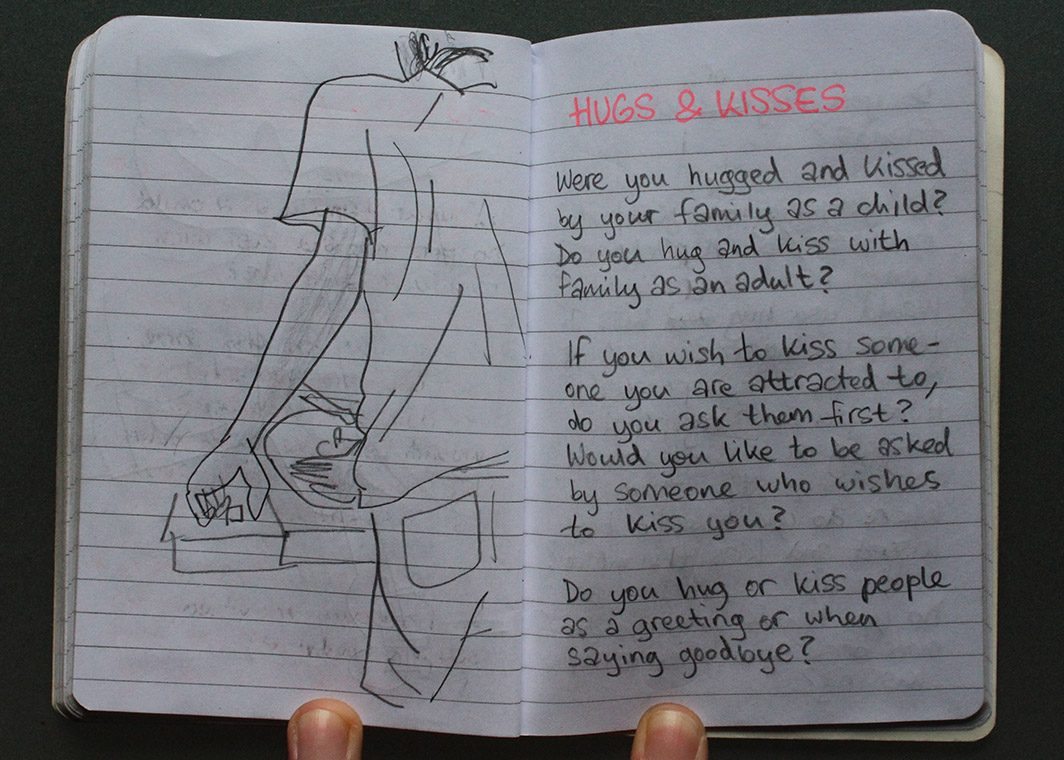 HUGS & KISSES
Were you hugged and kissed
by your family as a child?
Do you hug and kiss with
family as an adult?
If you wish to kiss some-
one you are attracted to,
do you ask them first?
Would you like to be asked
by someone who wishes
to kiss you?
Do you hug or kiss people
as a greeting or when
saying goodbye?